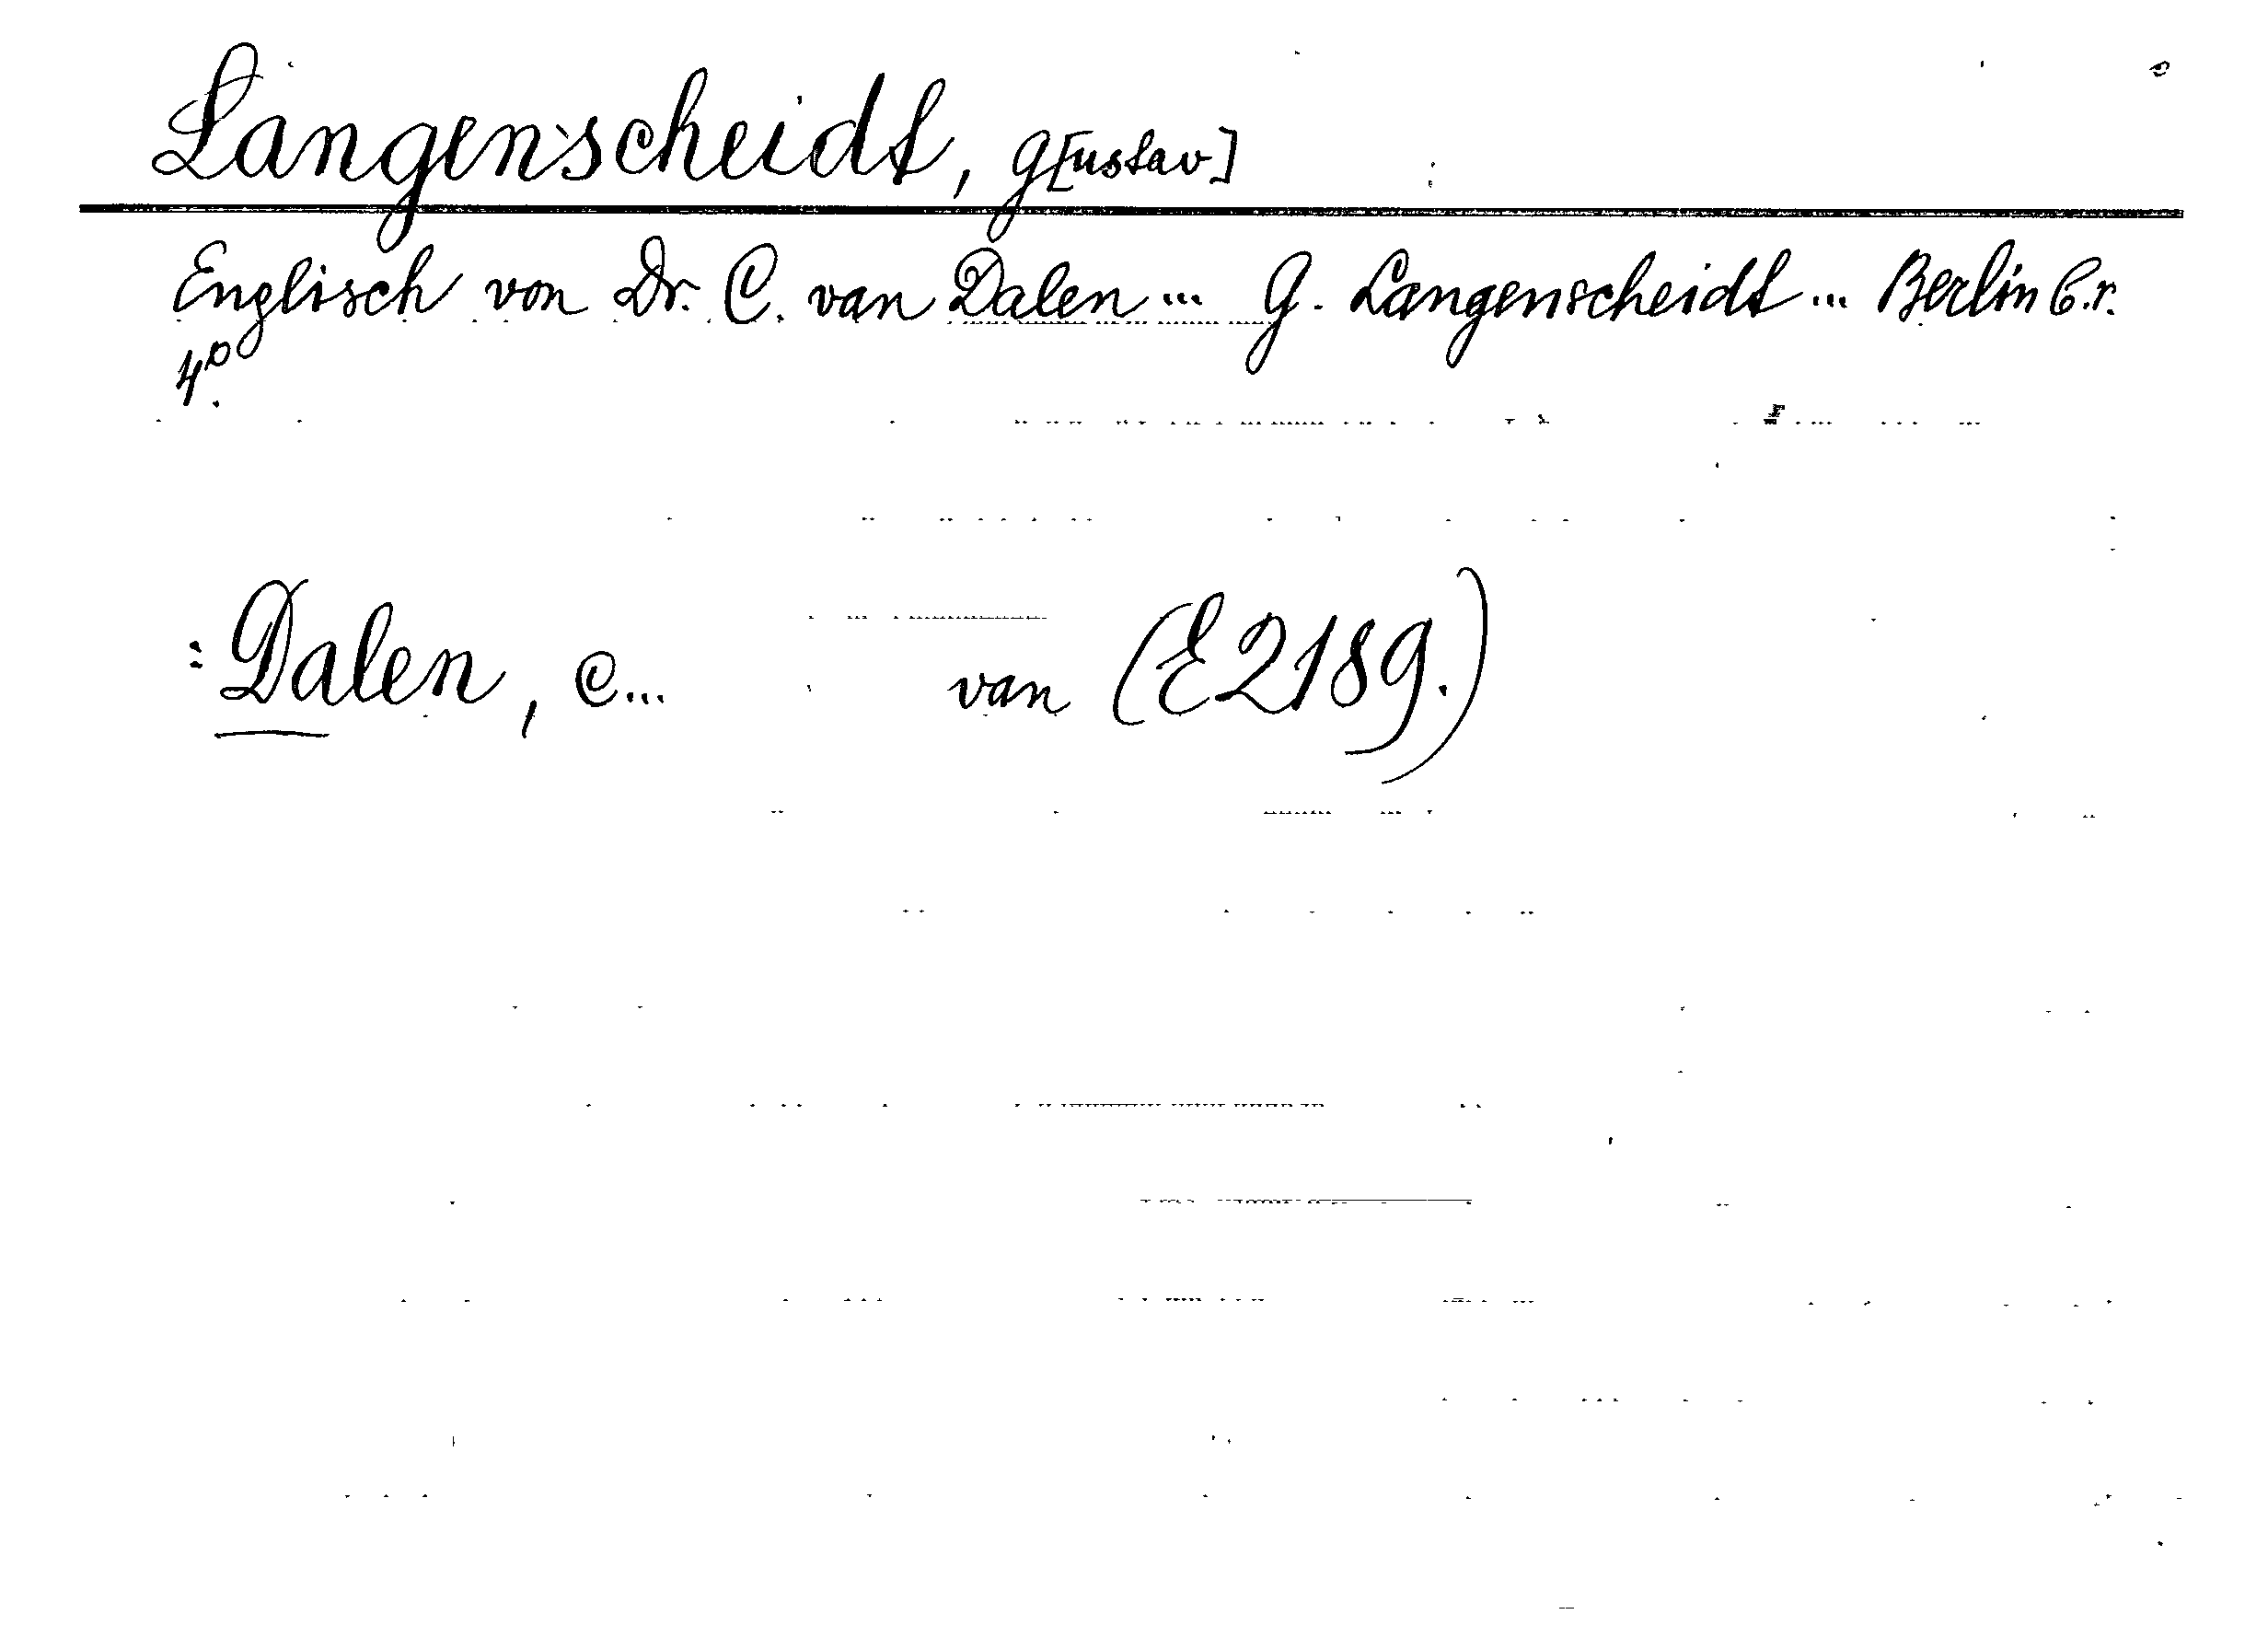 Langenscheidt, G[ustav]
Englisch von Dr. C. van Dalen... G. Langenscheidt... Berlin б.г.
4°.
: Dalen, C... van (E2189.)